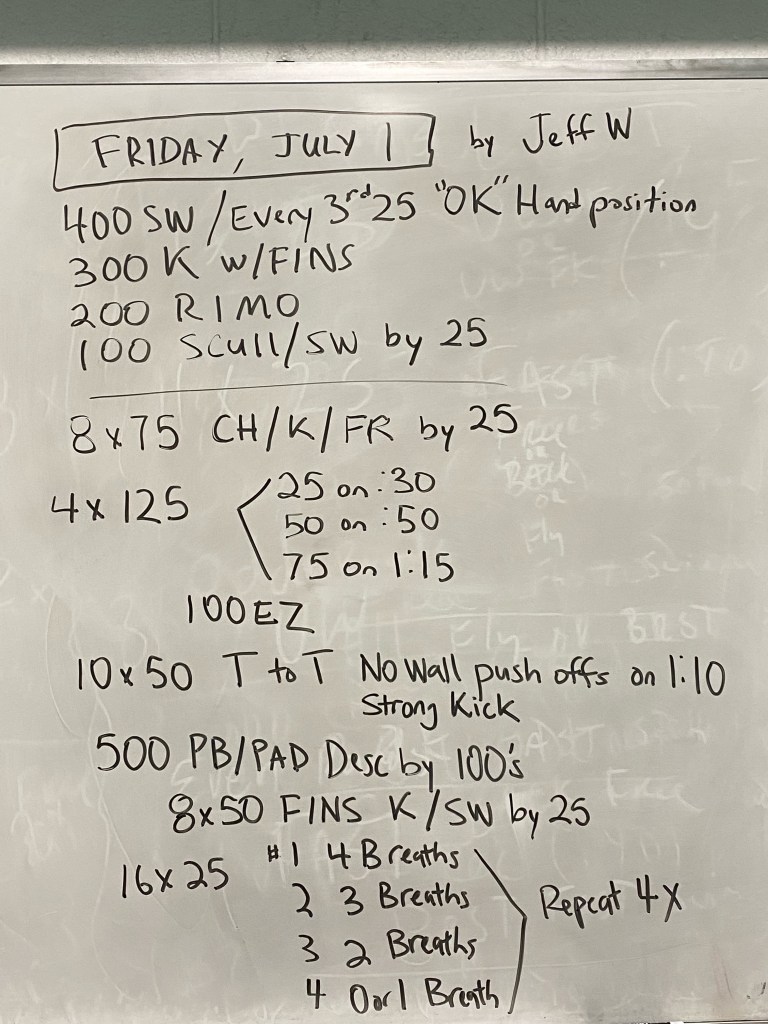 FRIDAY, JULY 1 by Jeff W
400 SW / Every 3rd 25 "OK" Hand position
300 K W/FINS
200 RIMO
100 Scull/SW by 25
8x75 CH/K/FR by 25
4x125
25 on :30
50 on :50
75 on 1:15
100 EZ
10x50 T to T No Wall push offs on 1:10
Strong Kick
500 PB/PAD Desc by 100's
8x50 FINS K/SW by 25
16x25
#1 4 Breaths
2 3 Breaths
3 2 Breaths
4 0 or 1 Breath
Repeat 4x